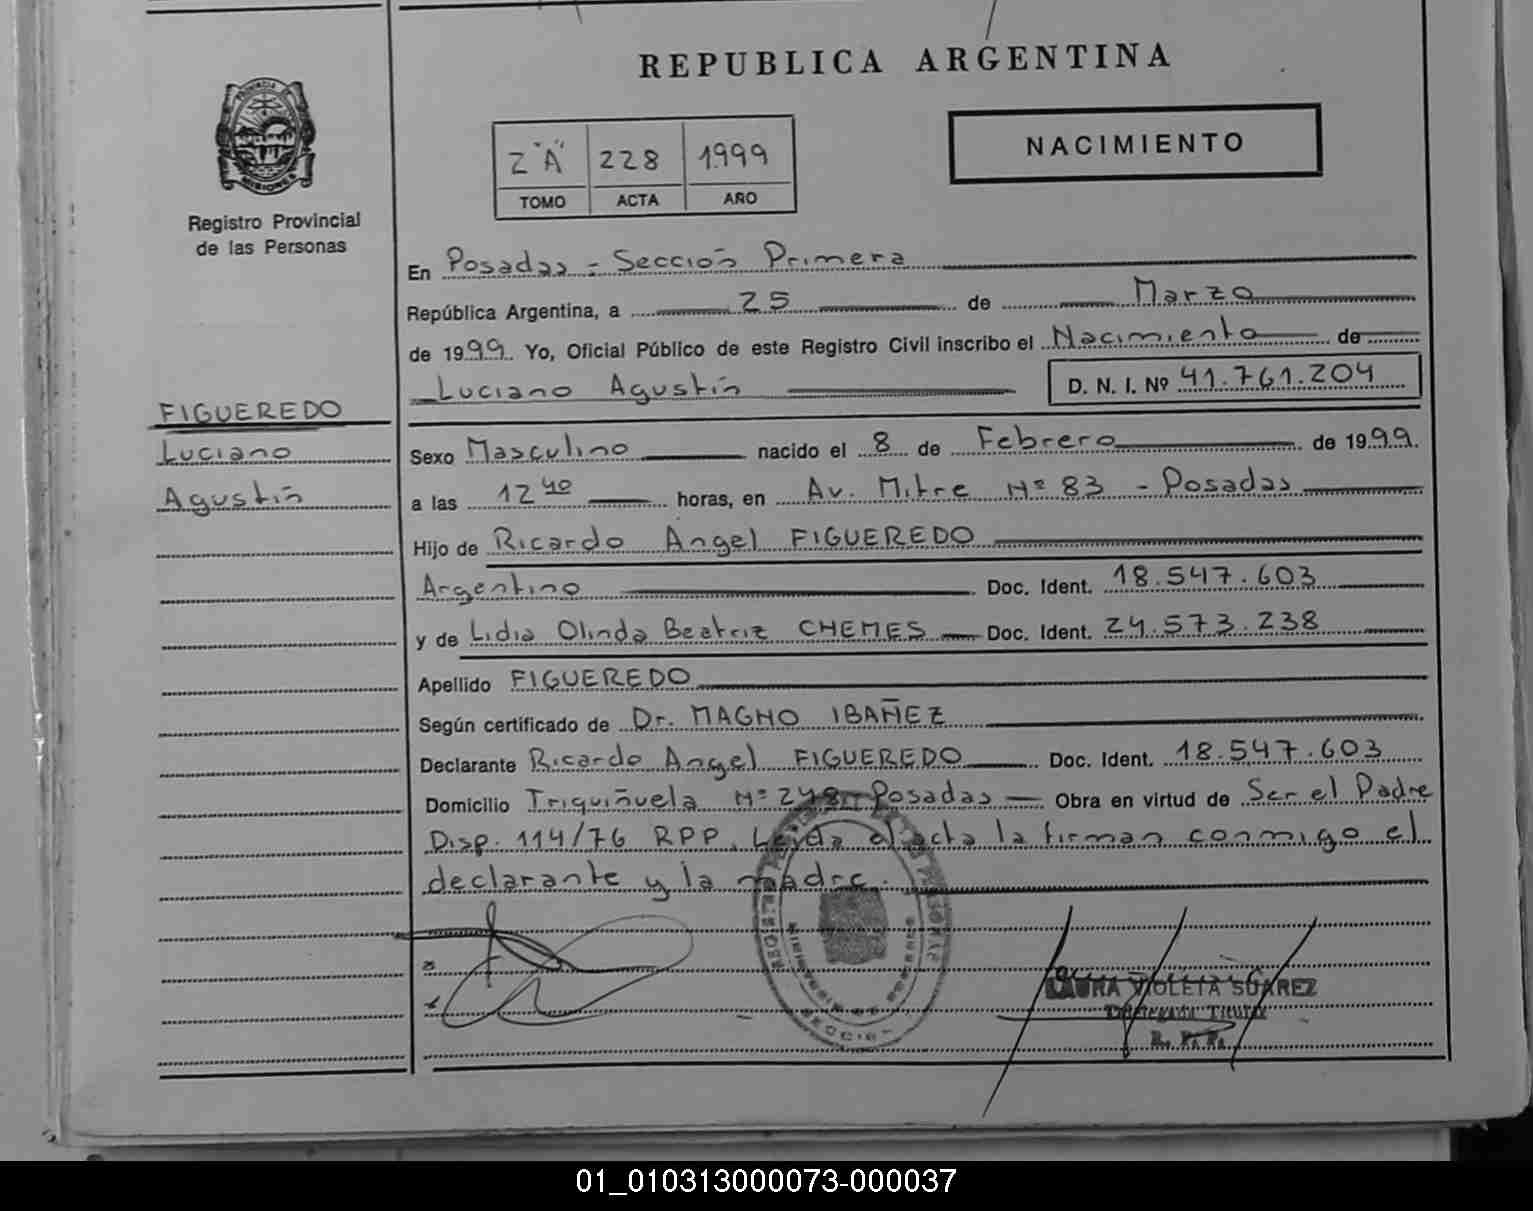 REPUBLICA ARGENTINA
PROVINCIA DE
MISIONES
Registro Provincial
de las Personas
2 "A" 228 1999
TOMO ACTA AÑO
NACIMIENTO
En Posadas - Sección Primera
República Argentina, a 25 de Marzo
de 1999 Yo, Oficial Público de este Registro Civil inscribo el Nacimiento de
Luciano Agustín D. N. I. Nº 41.761.204
FIGUEREDO
Luciano
Agustín
Sexo Masculino nacido el 8 de Febrero de 1999.
a las 12 40 horas, en Av. Mitre Nº 83 - Posadas
Hijo de Ricardo Angel FIGUEREDO
Argentino Doc. Ident. 18.547.603
y de Lidia Olinda Beatriz CHEMES Doc. Ident. 24.573.238
Apellido FIGUEREDO
Según certificado de Dr. MAGNO IBAÑEZ
Declarante Ricardo Angel FIGUEREDO Doc. Ident. 18.547.603
Domicilio Triquiñuela Nº 248 - Posadas Obra en virtud de Ser el Padre
Disp. 114/76 RPP. Leída el acta la firman conmigo el
declarante y la madre.
LAURA VIOLETA SUAREZ
Delegada Titular
R. P. P.
01_010313000073-000037